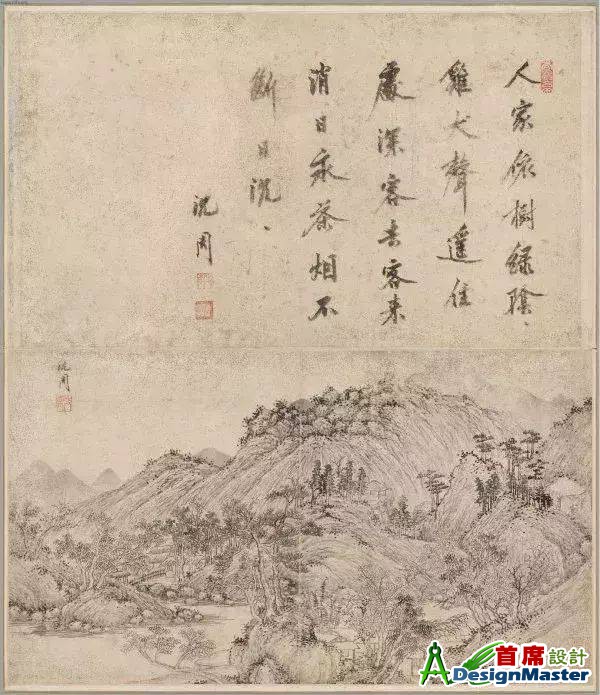 人家依樹綠陰、
雞犬聲遙住
處深客去客来
消日永茶烟不
斷日沉、
沈周
沈周
首席設計
ADesignMaster